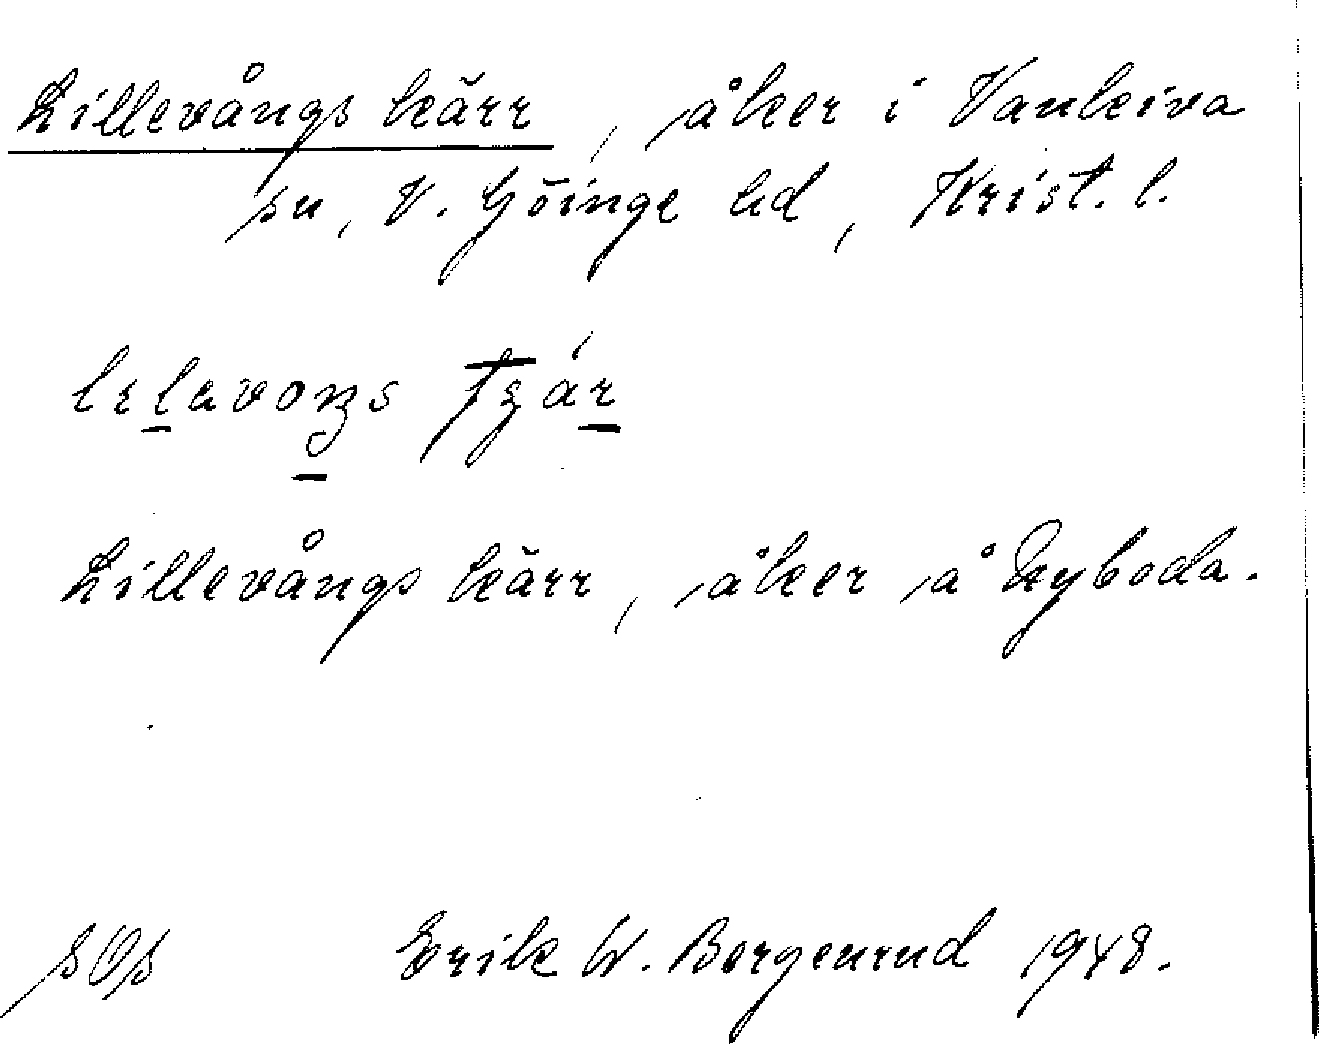 Lillevångs kärr, åker i Vankiva
sn, V. Göinge hd, Krist. l.
Lillevångs kärr, åker å Nyboda.
sOs Erik W. Bergenrud 1948.